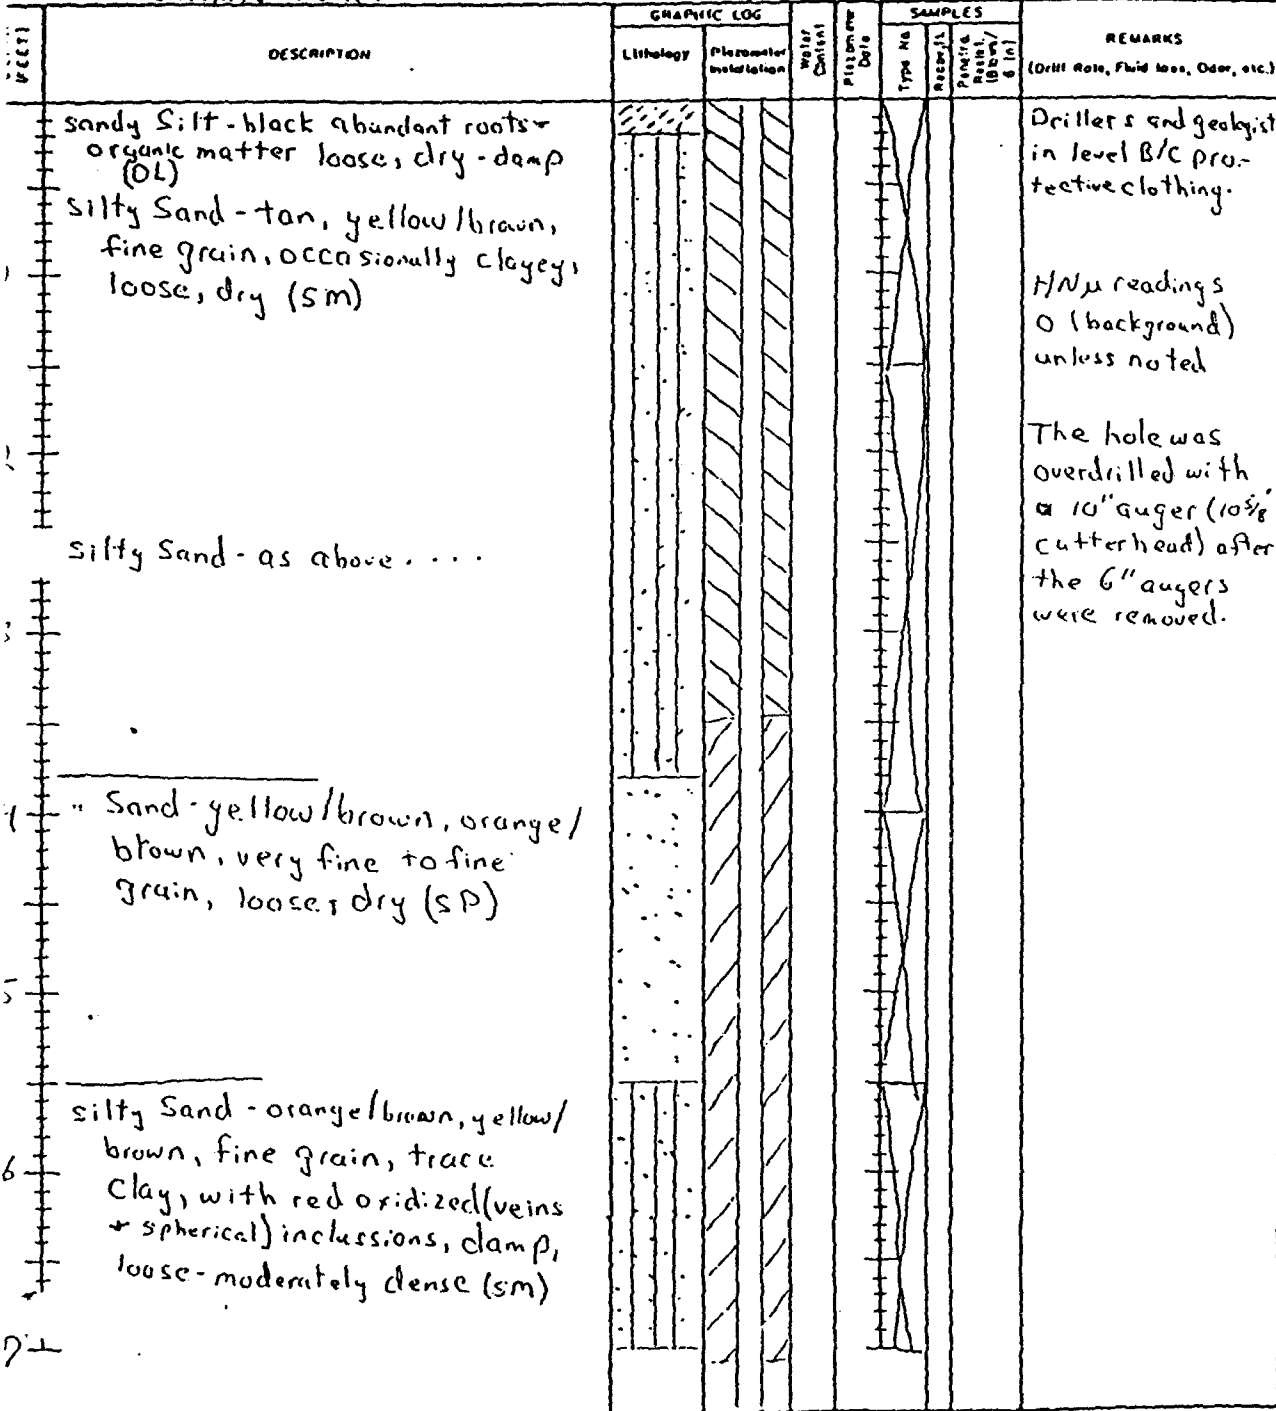 (FEET)
DESCRIPTION
GRAPHIC LOG
Lithology
Piezometer
Installation
Water
Content
Piezometer
Data
SAMPLES
Type No
REMARKS
(Drill Rate, Fluid loss, Odor, etc.)
sandy Silt - black abundant roots +
organic matter loose, dry - damp
(OL)
silty Sand - tan, yellow/brown,
fine grain, occasionally clayey,
loose, dry (SM)
silty Sand - as above . . . .
Sand - yellow/brown, orange/
brown, very fine to fine
grain, loose, dry (SP)
silty Sand - orange/brown, yellow/
brown, fine grain, trace
clay, with red oxidized (veins
+ spherical) inclussions, damp,
loose - moderately dense (sm)
3
4
5
6
7
Drillers and geologist
in level B/C pro-
tective clothing.
HNu readings
0 (background)
unless noted
The hole was
overdrilled with
a 10" auger (10 5/8"
cutterhead) after
the 6" augers
were removed.